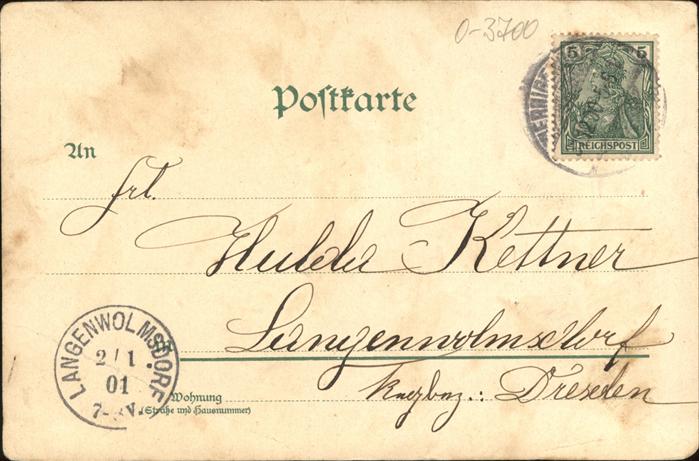 0-3700
5 5
REICHSPOST
Postkarte
An
Frl.
Hulda Kettner
in
Langenwolmsdorf
LANGENWOLMSDORF
2/1
01
7-8N.
Wohnung
(Straße und Hausnummer)
Dresden